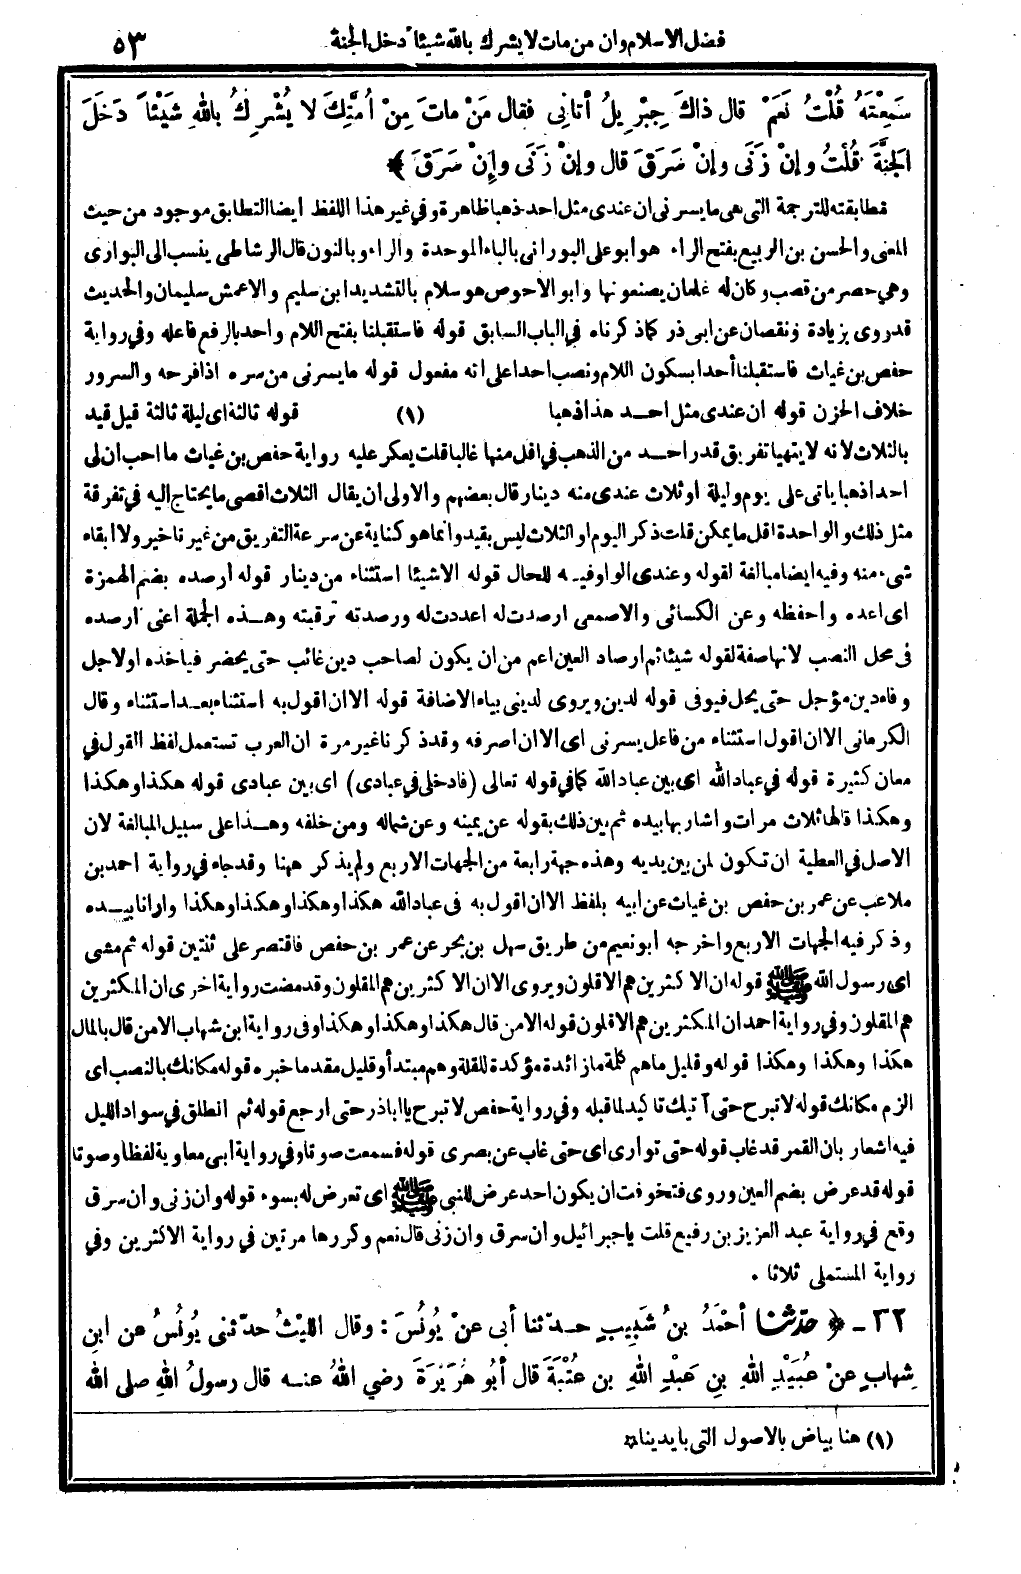 فضل الاسلام وان من مات لا يشرك بالله شيئا دخل الجنة ٥٣
سَمِعْتَهُ قُلْتُ نَعَمْ قال ذاكَ جِبْرِيلُ أتانِى فقال مَنْ ماتَ مِنْ أُمَّتِكَ لا يُشْرِكُ باللهِ شَيْئاً دَخَلَ
الجَنَّةَ قُلْتُ وإنْ زَنَى وإنْ سَرَقَ قال وإنْ زَنَى وإنْ سَرَقَ ﴾
مطابقته للترجمة التى هى ما يسرنى ان عندى مثل احد ذهبا ظاهرة وفي غير هذا اللفظ ايضا التطابق موجود من حيث
المعنى والحسن بن الربيع بفتح الراء هو ابو على البورانى بالباء الموحدة والراء وبالنون قال الرشاطى ينسب الى البوارى
وهي حصر من قصب وكان له غلمان يصنعونها وابو الاحوص هو سلام بالتشديد ابن سليم والاعمش سليمان والحديث
قدروى بزيادة ونقصان عن ابى ذر كما ذكرناه في الباب السابق قوله فاستقبلنا بفتح اللام واحد بالرفع فاعله وفي رواية
حفص بن غياث فاستقبلنا أحدا بسكون اللام ونصب احدا على انه مفعول قوله ما يسرنى من سره اذا فرحه والسرور
خلاف الحزن قوله ان عندى مثل احد هذا ذهبا (١) قوله ثالثة اى ليلة ثالثة قيل قيد
بالثلاث لانه لا يتهيا تفريق قدر احد من الذهب في اقل منها غالبا قلت يعكر عليه رواية حفص بن غياث ما احب ان لى
احد اذهبا ياتى على يوم وليلة او ثلاث عندى منه دينار قال بعضهم والاولى ان يقال الثلاث اقصى ما يحتاج اليه في تفرقة
مثل ذلك والواحدة اقل ما يمكن قلت ذكر اليوم او الثلاث ليس بقيد وانما هو كناية عن سرعة التفريق من غير تاخير ولا ابقاء
شىء منه وفيه ايضا مبالغة لقوله وعندى الواو فيه للحال قوله الا شيئا استثناء من دينار قوله أرصده بضم الهمزة
اى اعده واحفظه وعن الكسائى والاصمعى ارصدت له اعددت له ورصدته ترقبته وهذه الجملة اعنى ارصده
فى محل النصب لانها صفة لقوله شيئا ثم ارصاد العين اعم من ان يكون لصاحب دين غائب حتى يحضر فياخذه او لاجل
وفاء دين مؤجل حتى يحل فيوفى قوله لدين ويروى لدينى بياء الاضافة قوله الا ان اقول به استثناء بعد استثناء وقال
الكرمانى الا ان اقول استثناء من فاعل يسرنى اى الا ان اصرفه وقد ذكرنا غير مرة ان العرب تستعمل لفظ القول في
معان كثيرة قوله في عباد الله اى بين عباد الله كما في قوله تعالى (فادخلى في عبادى) اى بين عبادى قوله هكذا وهكذا
وهكذا قالها ثلاث مرات واشار بها بيده ثم بين ذلك بقوله عن يمينه وعن شماله ومن خلفه وهذا على سبيل المبالغة لان
الاصل في العطية ان تكون لمن بين يديه وهذه جهة رابعة من الجهات الاربع ولم يذكر ههنا وقد جاء في رواية احمد بن
ملاعب عن عمر بن حفص بن غياث عن ابيه بلفظ الا ان اقول به فى عباد الله هكذا وهكذا وهكذا وهكذا وارانا بيده
وذكر فيه الجهات الاربع واخرجه ابو نعيم من طريق سهل بن بحر عن عمر بن حفص فاقتصر على ثنتين قوله ثم مشى
اى رسول الله ﷺ قوله ان الاكثرين هم الاقلون ويروى الا ان الاكثرين هم المقلون وقد مضت رواية اخرى ان المكثرين
هم المقلون وفي رواية احمد ان المكثرين هم الاقلون قوله الا من قال هكذا وهكذا وهكذا وفى رواية ابن شهاب الا من قال بالمال
هكذا وهكذا وهكذا قوله وقليل ما هم كلمة ما زائدة مؤكدة للقلة وهم مبتدأ وقليل مقدما خبره قوله مكانك بالنصب اى
الزم مكانك قوله لا تبرح حتى آتيك تاكيد لما قبله وفي رواية حفص لا تبرح يا اباذر حتى ارجع قوله ثم انطلق في سواد الليل
فيه اشعار بان القمر قد غاب قوله حتى توارى اى حتى غاب عن بصرى قوله فسمعت صوتا وفي رواية ابى معاوية لفظا وصوتا
قوله قد عرض بضم العين وروى فتخوفت ان يكون احد عرض للنبى ﷺ اى تعرض له بسوء قوله وان زنى وان سرق
وقع في رواية عبد العزيز بن رفيع قلت يا جبرائيل وان سرق وان زنى قال نعم وكررها مرتين في رواية الاكثرين وفي
رواية المستملى ثلاثا .
٣٢ ـ ﴿ حَدَّثَنَا أحْمَدُ بنُ شَبِيبٍ حدّثنا أبى عنْ يُونُسَ : وقال اللَّيْثُ حدّثنى يُونُسُ عنِ ابنِ
شِهابٍ عنْ عُبَيْدِ اللهِ بنِ عَبْدِ اللهِ بن عُتْبَةَ قال أَبُو هُرَيْرَةَ رضي اللهُ عنه قال رسولُ اللهِ صلى الله
(١) هنا بياض بالاصول التى بايدينا